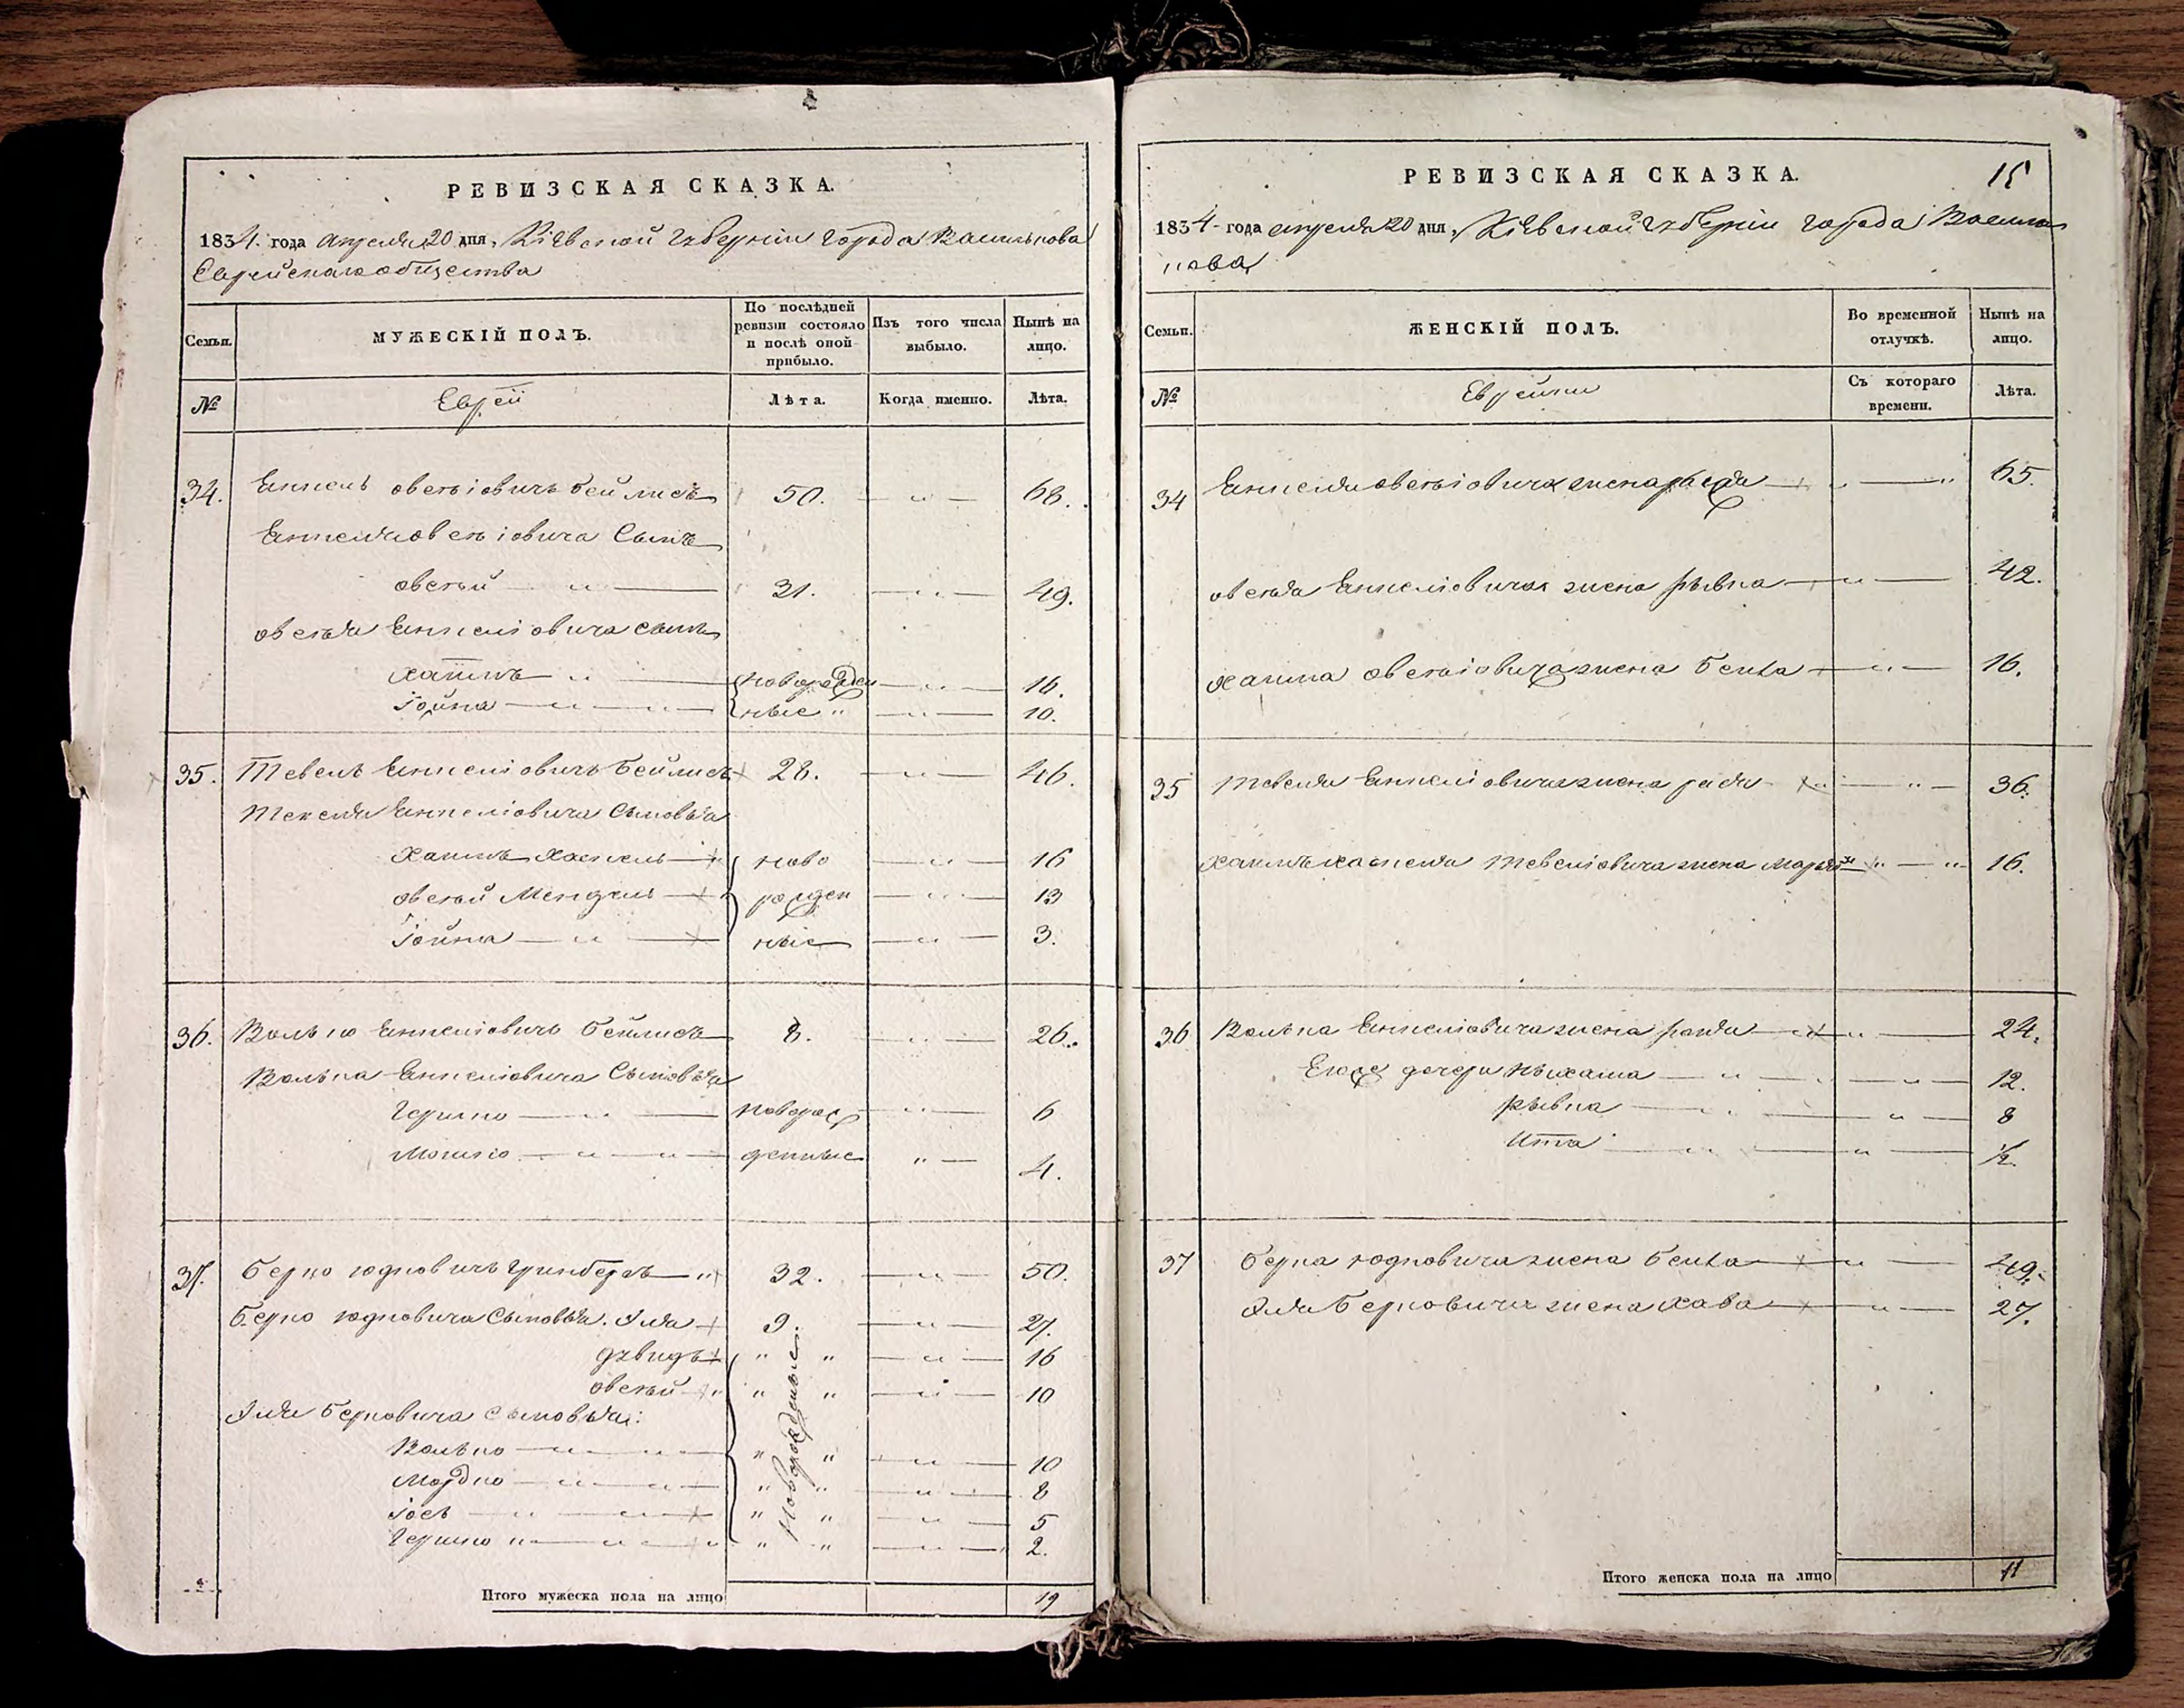 РЕВИЗСКАЯ СКАЗКА.
1834. года апреля 20 дня, Кіевской губерніи города Василькова
Еврейскаго общества
Семьи.
МУЖЕСКІЙ ПОЛЪ.
По послѣдней ревизіи состояло и послѣ оной прибыло.
Изъ того числа выбыло.
Нынѣ на лицо.
№
Евреи
Лѣта.
Когда именно.
Лѣта.
34. Янкель овсѣіовичъ бейлисъ 50. — " — 68.
Янкеля овсѣіовича Сынъ
овсѣй — " — 31. — " — 49.
овсѣя Янкеліовича сынъ
хаимъ " — новорожден — " — 16.
Іойна — " — " — ные " — " — 10.
35. Тевель Янкеліовичъ бейлисъ 28. — " — 46.
Тевеля Янкеліовича Сыновья
Хаимъ Хаскель — ново — " — 16
овсѣй Мендель — рожден — " — 13
Іойна — " — ные — " — 3.
36. Волько Янкеліовичъ бейлисъ 8. — " — 26.
Волька Янкеліовича Сыновья
Гершко — " — новорож — " — 6
Мошко — " — " — денные " — 4.
37. Берко юдковичъ Гринбергъ — " 32. — " — 50.
Берко юдковича Сыновья. Эля 9. — " — 27.
дувидъ " " — " — 16
овсѣй " " " — " — 10
Эля Берковича сыновья:
Волько — " — " — " " — " — 10
Мордко — " — " — " " — " — 8
Іосъ — " — " — " " — " — 5
Гершко " — " — " " " — " — 2.
Новорожденные
Итого мужеска пола на лицо 19
РЕВИЗСКАЯ СКАЗКА.
15
1834 года апреля 20 дня, Кіевской губерніи города Василь
кова
Семьи.
ЖЕНСКІЙ ПОЛЪ.
Во временной отлучкѣ.
Нынѣ на лицо.
№
Еврейки
Съ котораго времени.
Лѣта.
34 Янкеля овсѣіовича жена — " — " 65.
овсѣя Янкеліовича жена рывка — " — 42.
хаима овсѣіовича жена бейла — " — 16.
35 Тевеля Янкеліовича жена рася " — " — 36.
Хаимъ хаскеля Тевеліовича жена Марья " — " 16.
36 Волька Янкеліовича жена — " — 24.
Его же дочери — " — " — 12.
рывка — " — " — 8
Итта — " — " — 1/2.
37 берка юдковича жена бейла — " — 49.
Эля Берковича жена хава — " — 27.
Итого женска пола на лицо 11